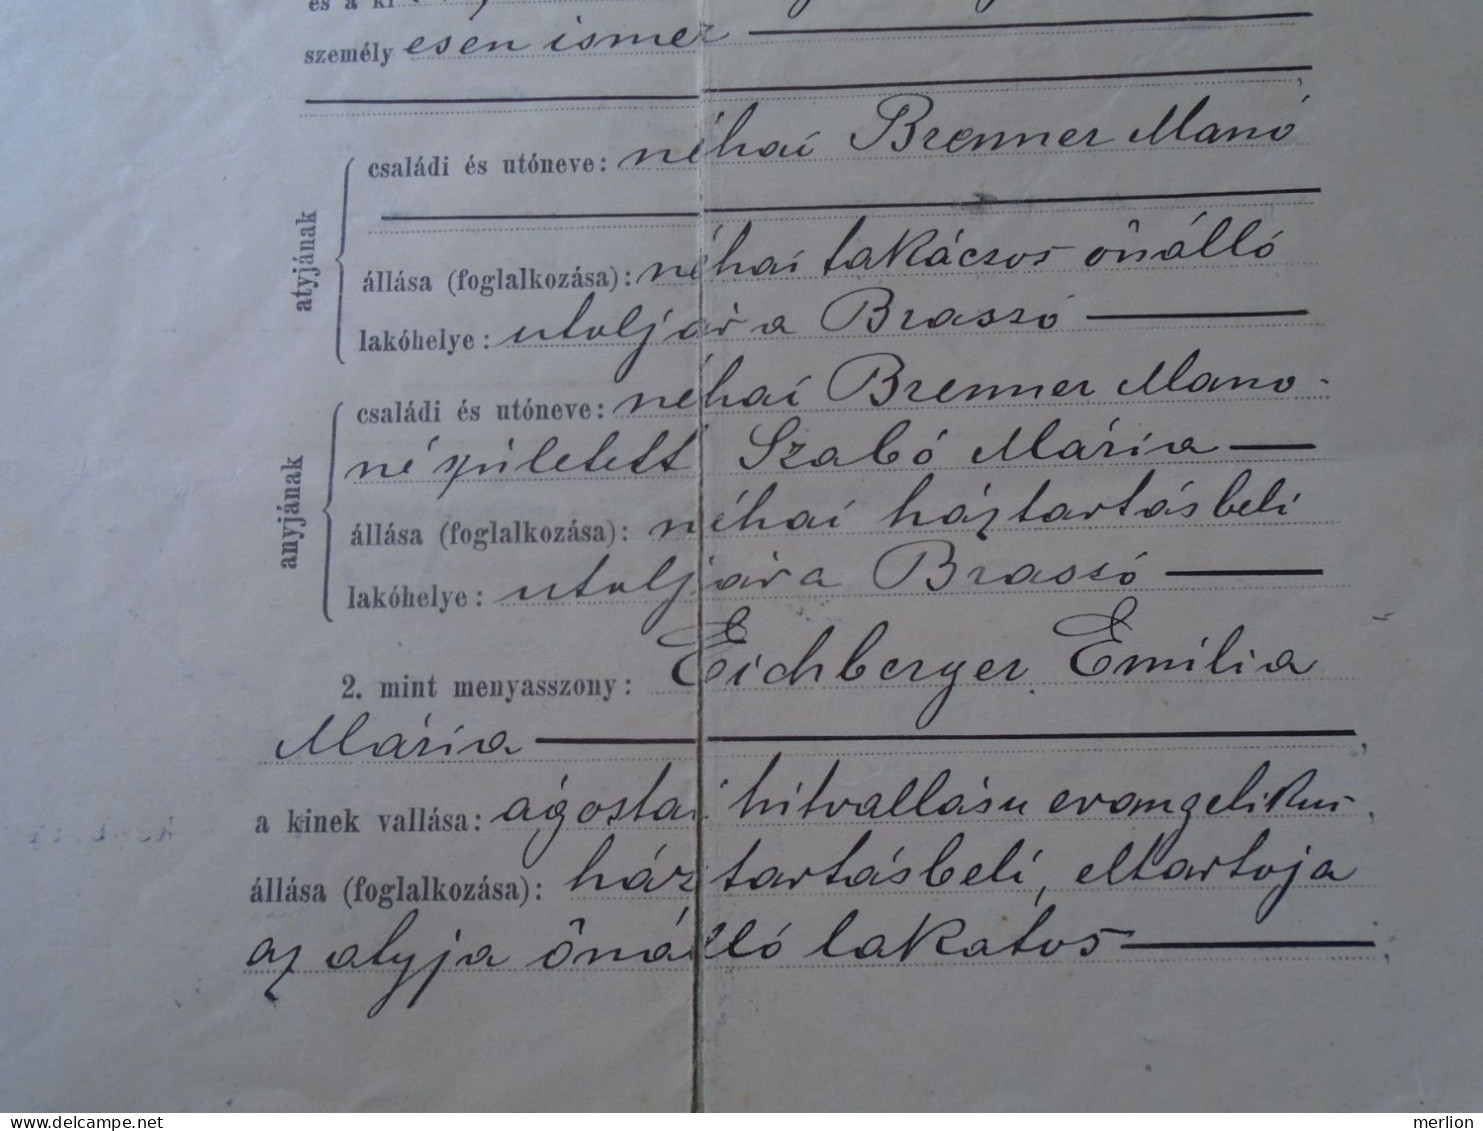 és a ki
személy esen ismer
atyjának
családi és utóneve: néhai Brenner Manó
állása (foglalkozása): néhai takácsos önálló
lakóhelye: utoljára Brassó
anyjának
családi és utóneve: néhai Brenner Mano-
né született Szabó Mária
állása (foglalkozása): néhai háztartásbeli
lakóhelye: utoljára Brassó
2. mint menyasszony: Eichberger Emilia
Mária,
a kinek vallása: ágostai hitvallásu evangelikus,
állása (foglalkozása): háztartásbeli, eltartója
az atyja önálló lakatos;
merlion